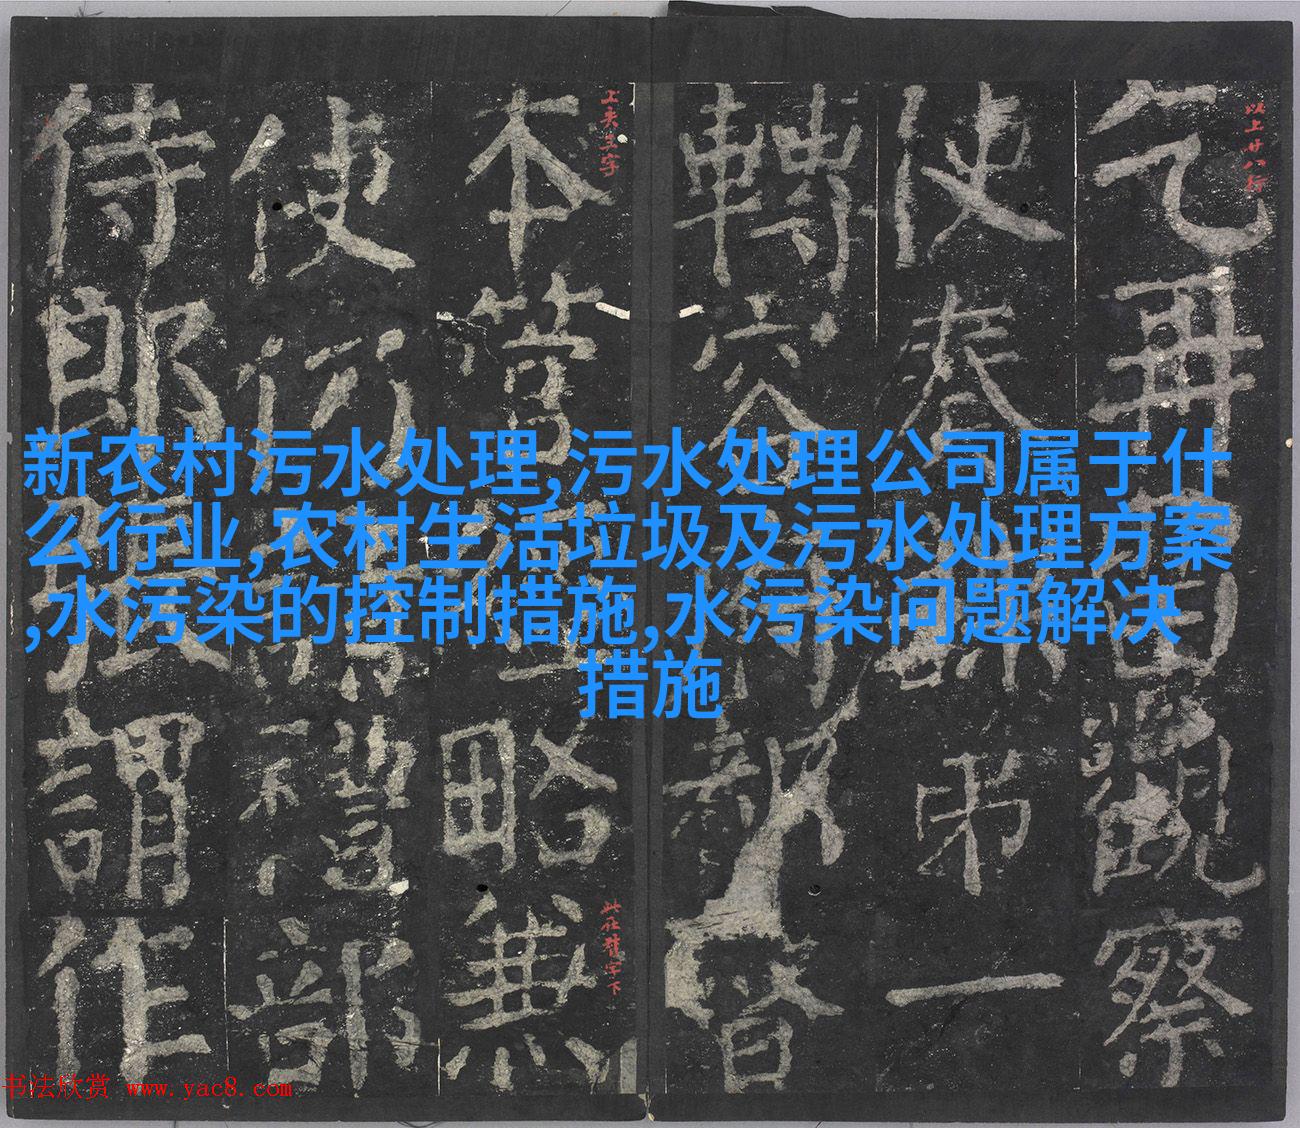 新农村污水处理,污水处理公司属于什
么行业,农村生活垃圾及污水处理方案
,水污染的控制措施,水污染问题解决
措施
乞再
觀察
使奉
弟一
轉
督
以上廿八行
本營
略無
使
禮部
侍郎
謂作
上夹三字
书法欣赏 www.yac8.com